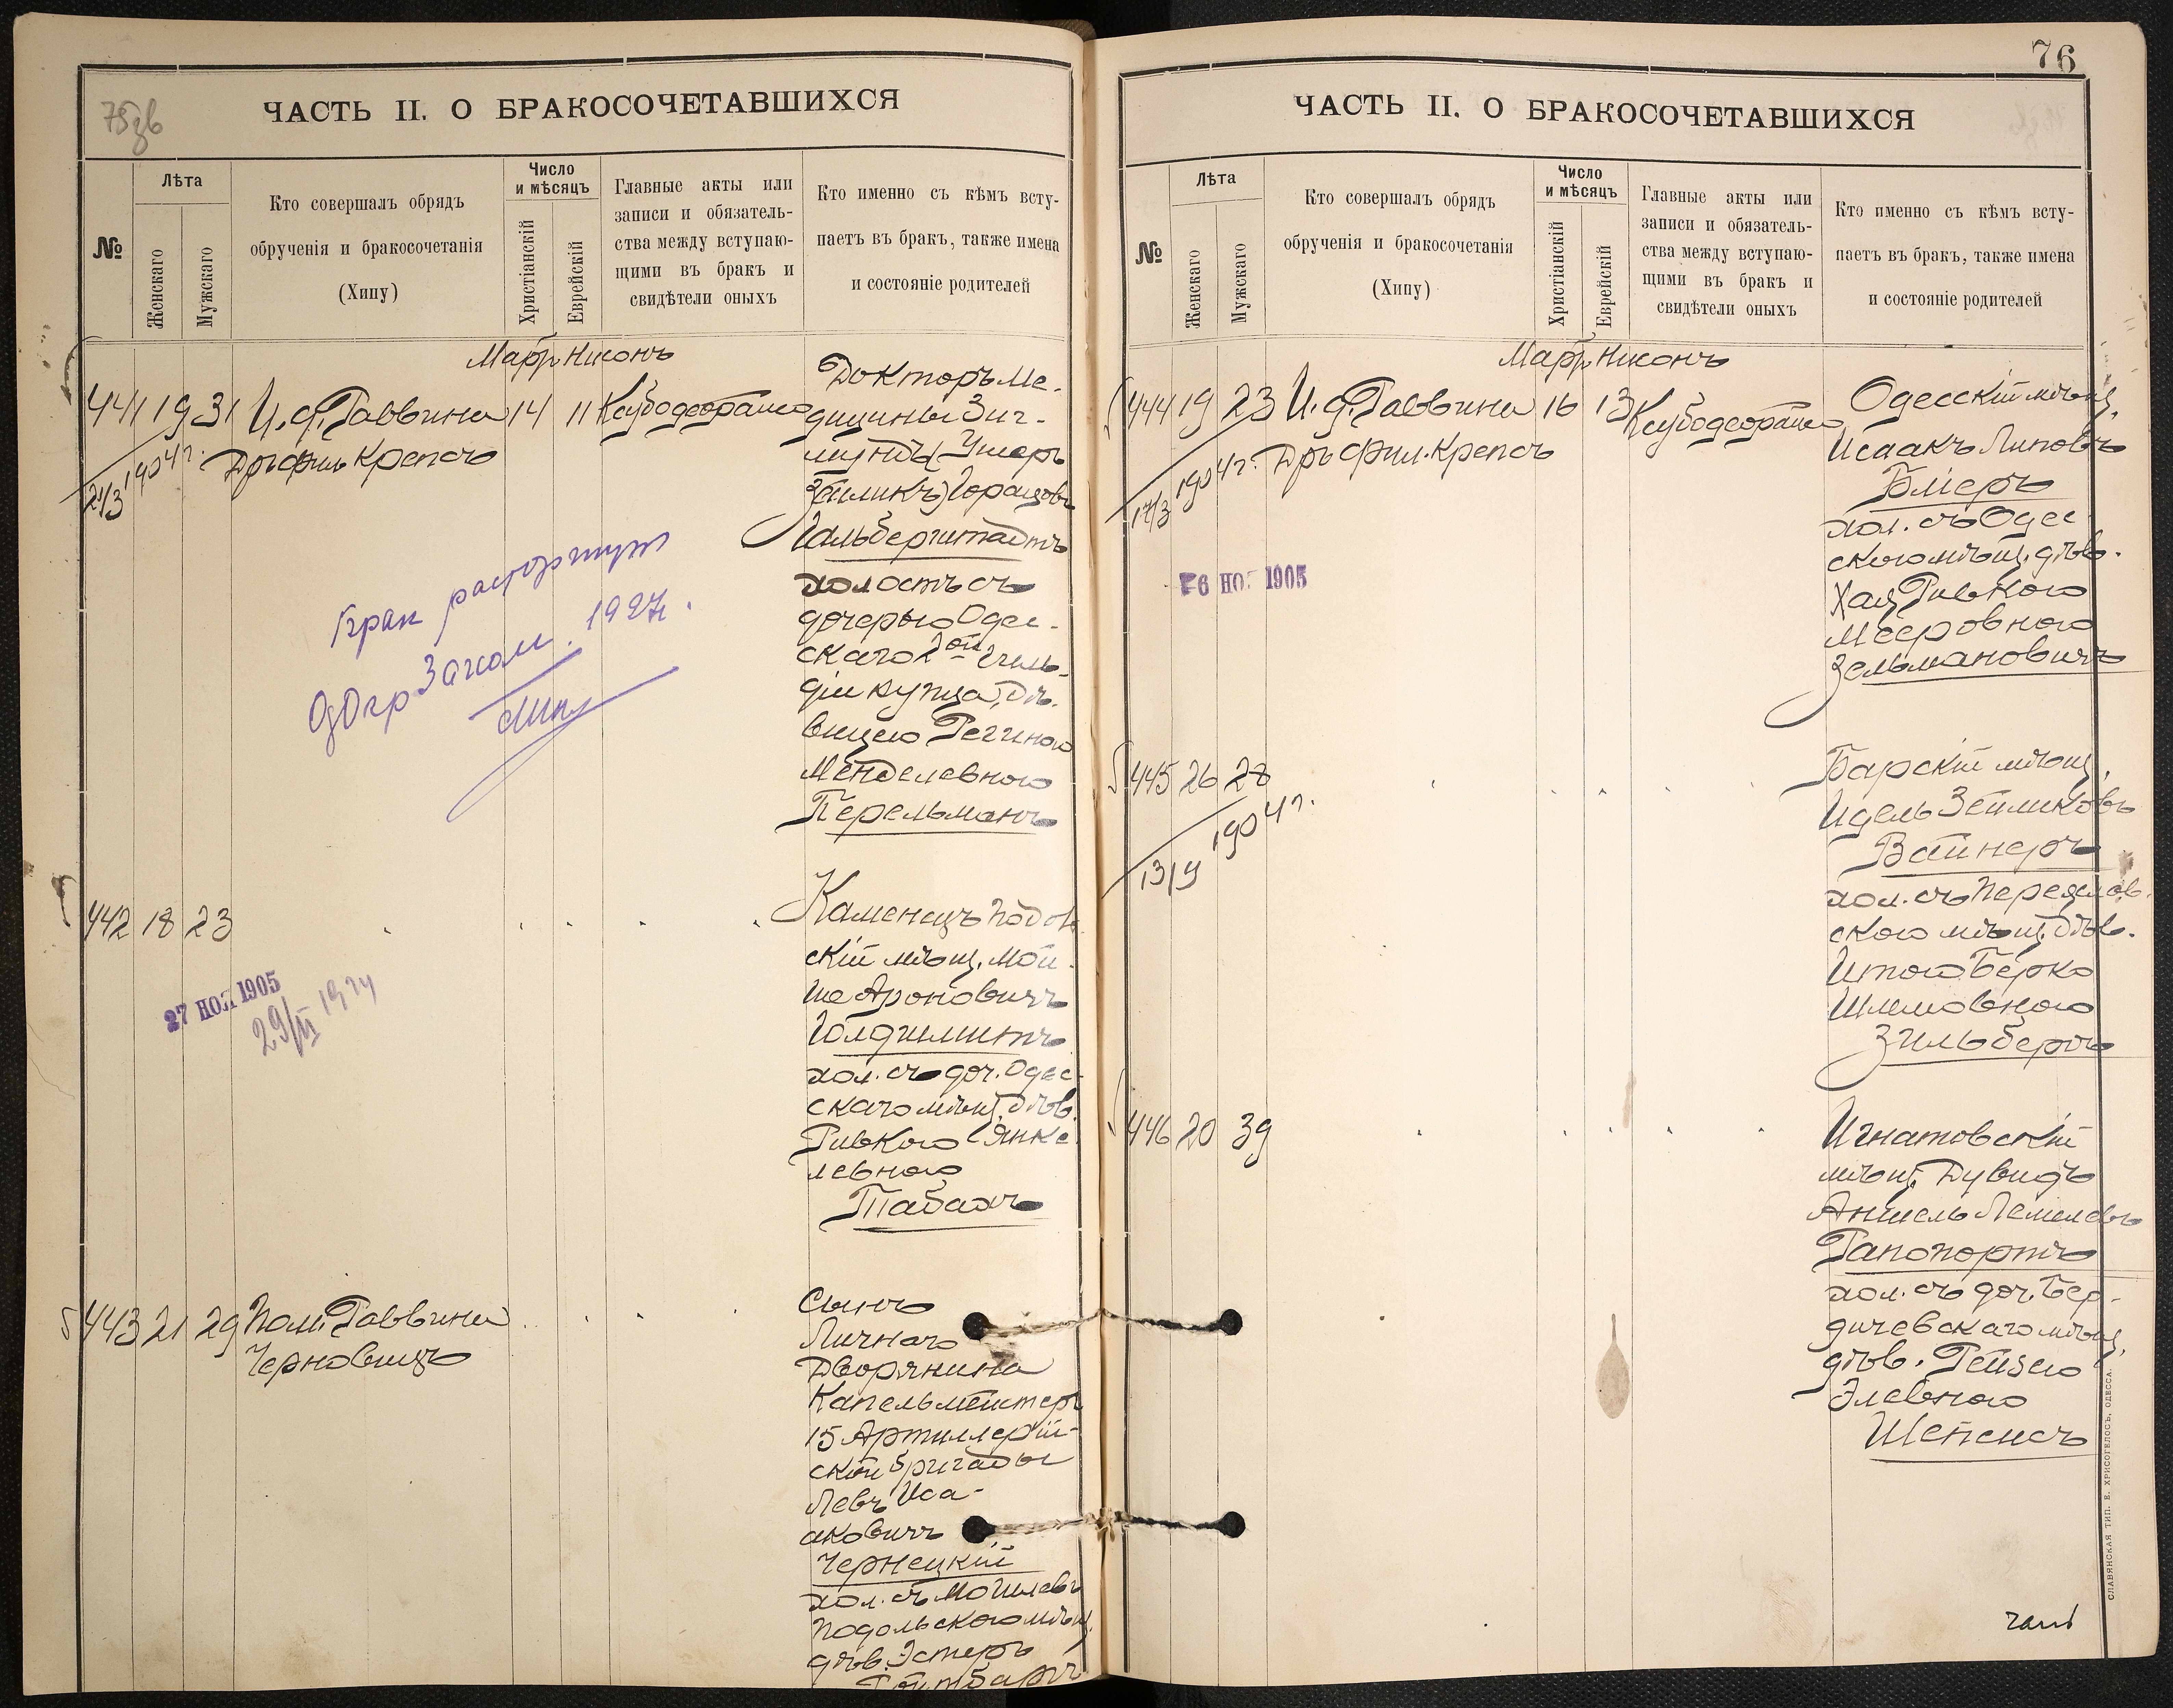 75зв
ЧАСТЬ II. О БРАКОСОЧЕТАВШИХСЯ
№
Лѣта
Женскаго
Мужскаго
Кто совершалъ обрядъ
обрученія и бракосочетанія
(Хипу)
Число
и мѣсяцъ
Христіанскій
Еврейскій
Главные акты или
записи и обязатель-
ства между вступаю-
щими въ бракъ и
свидѣтели оныхъ
Кто именно съ кѣмъ всту-
паетъ въ бракъ, также имена
и состояніе родителей
Нисонъ
441 19 31 И. д. Раввина 14 11
Дръ фил Крепсъ
21/3 1904 г.
Докторъ Ме-
дицины Зиг-
мундъ (Ушеръ
Зейликъ) Горацовъ
Гальберштадтъ
холостъ съ
дочерью Одес-
скаго 2ой гиль-
діи купца, дѣ-
вицею Региною
Менделевною
Перельманъ
Брак расторгнут
ОдОкрЗагсом. 1927г.
442 18 23
27 НОЯ 1905
Каменецъ Подол
скій мѣщ. Мой-
ше Ароновичъ
Голдшмитъ
хол. съ доч. Одес-
скаго мѣщ. дѣв.
Ривкою Янке
левною
Табахъ
443 21 29 Пом. Раввина
Черновицъ
Сынъ
Личнаго
Дворянина
Капельмейстер
15 Артиллерій-
ской бригады
Левъ Иса-
аковичъ
Чернецкій
хол. съ Могилевъ
Подольскою мѣщ.
дѣв. Эстеръ
76
ЧАСТЬ II. О БРАКОСОЧЕТАВШИХСЯ
№
Лѣта
Женскаго
Мужскаго
Кто совершалъ обрядъ
обрученія и бракосочетанія
(Хипу)
Число
и мѣсяцъ
Христіанскій
Еврейскій
Главные акты или
записи и обязатель-
ства между вступаю-
щими въ бракъ и
свидѣтели оныхъ
Кто именно съ кѣмъ всту-
паетъ въ бракъ, также имена
и состояніе родителей
Нисонъ
444 19 23 И. д. Раввина 16 13
Дръ Фил. Крепсъ
17/3 1904 г.
6 НОЯ 1905
Одесскій мѣщ.
Исаакъ Липовъ
Бліеръ
хол. съ Одес-
скою мѣщ. дѣв.
Хая Ривкою
Меeровною
Зельмановичъ
445 26 28
13/9 1904 г.
Барскій мѣщ.
Идель Зейликовъ
Вайнеръ
хол. съ Переяслав-
скою мѣщ. дѣв.
Итою Берко
Шлемовною
Зильберъ
446 20 39
Игнатовскій
мѣщ. Дувидъ
Аншель Лемелевъ
Рапопортъ
хол. съ доч. Бер-
дичевскаго мѣщ.
дѣв. Рейзею
Элевною
СЛАВЯНСКАЯ ТИП. Е. ХРИСОГЕЛОСЪ, ОДЕССА.